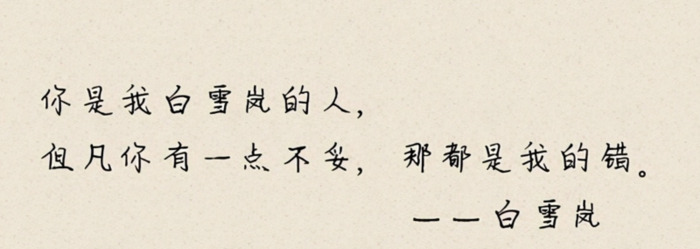 你是我白雪岚的人，
但凡你有一点不妥，那都是我的错。
——白雪岚